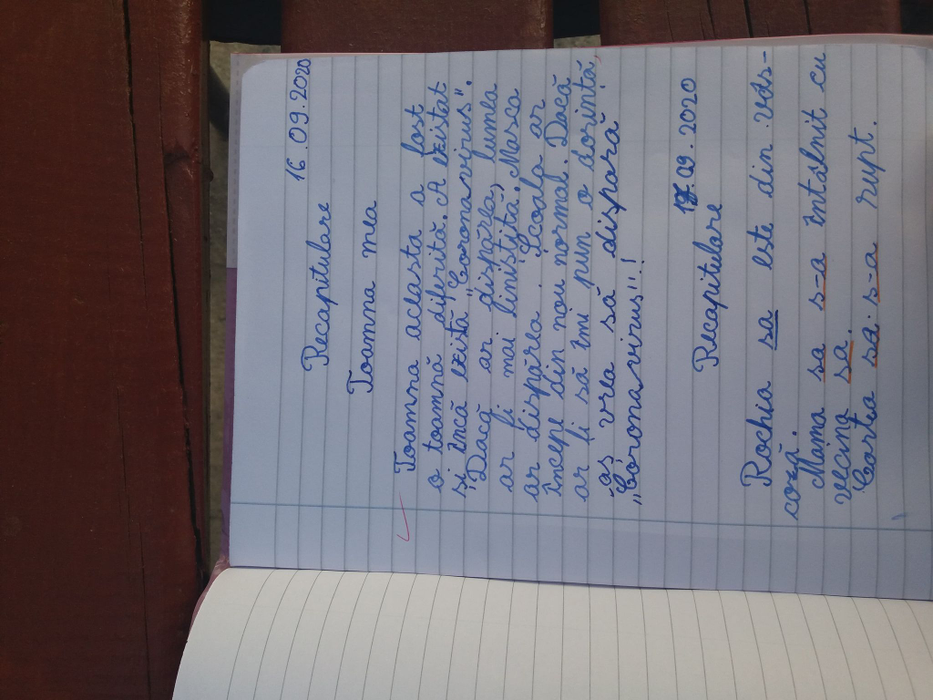 16.09.2020
Recapitulare
Toamna mea
Toamna aceasta a fost
o toamnă diferită. A existat
și încă există „Coronavirus".
Dacă ar dispărea, lumea
ar fi mai liniștită. Masca
ar dispărea. Școala ar
începe din nou normal. Dacă
ar fi să îmi pun o dorință,
aș vrea să dispară
„Coronavirus"!!
17.09.2020
Recapitulare
Rochia sa este din vâs-
coză.
Mama sa s-a întâlnit cu
vecina sa.
Cartea sa s-a rupt.